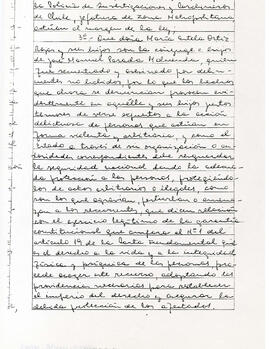 la Policía de Investigaciones y Carabineros
de Chile, y Jefatura de Zona Metropolitana
actúen al margen de la ley.
3º - Que doña María Estela Ortiz
Rojas y sus hijos son la cónyuge e hijos
de José Manuel Parada Maluenda, quien
fue secuestrado y asesinado por
no habidos, por lo que los hechos
que ahora se denuncian provocan
en aquella y sus hijos justos
temores de verse expuestos a la acción
delictiva de personas que actúan en
forma violenta y arbitraria, y como el
Estado a través de su organización o au-
toridades correspondientes debe resguardar
la seguridad nacional dando la adecuada
protección a las personas, protegiéndo-
los de actos arbitrarios e ilegales, como
son los que agravan, perturban o amena-
zan a los recurrentes, que dicen relación
con el ejercicio legítimo de la garantía
constitucional que ampara el Nº 1 del
artículo 19 de la Carta Fundamental, que
es el derecho a la vida y a la integridad
física y psíquica de las personas, pro-
cede acoger este recurso, adoptando las
providencias necesarias para restablecer
el imperio del derecho y asegurar la
debida protección de los afectados.